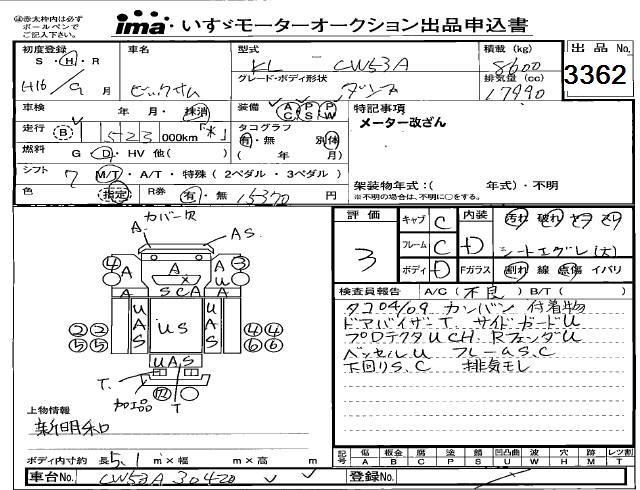 ㊟赤太枠内は必ず
ボールペンで
ご記入下さい。
ima・いすゞモーターオークション出品申込書
初度登録 車名 型式 積載(kg) 出品No.
S・H・R ビックサム KL-CW53A 8600 3362
H16/9月 グレード・ボディ形状 ダンプ 排気量(cc) 17990
車検 年 月・抹消 装備 A/C P/S P/W 特記事項
走行 B 523 000km「*」 タコグラフ 有・無 別体 メーター改ざん
燃料 G・D・HV 他( ) ( 年 月)
シフト 7 M/T・A/T・特殊(2ペダル・3ペダル) 架装物年式:( 年式)・不明
色 指定 R券 有・無 15370円 ※不明の場合は、不明に○をする。
カバー欠
A. A S.
④ A ③
A A U
A S C A A
U A S U S U A S
②② ④④
⑤⑤ ⑥⑥
U A S
T.
加工品 T
評価 キャブ C 内装 汚れ 破れ
3 フレーム C D シートエグレ(大)
ボディ D Fガラス 割れ 線 点傷 イバリ
検査員報告 A/C(不良)B/T( )
タコ04/09 カンバン 付着物
ドアバイザーT. サイドガードU
プロテクタUCH. RフェンダU
ベッセルU フレームS.C
下回りS.C 排気モレ
上物情報
新明和
ボディ内寸約 長5.1m×幅 m×高 m
記号 傷A 板金B 腐C 塗P 錆S 凹凸曲U 波W 穴H 跡M レツ割T
車台No. CW53A 30420 登録No.